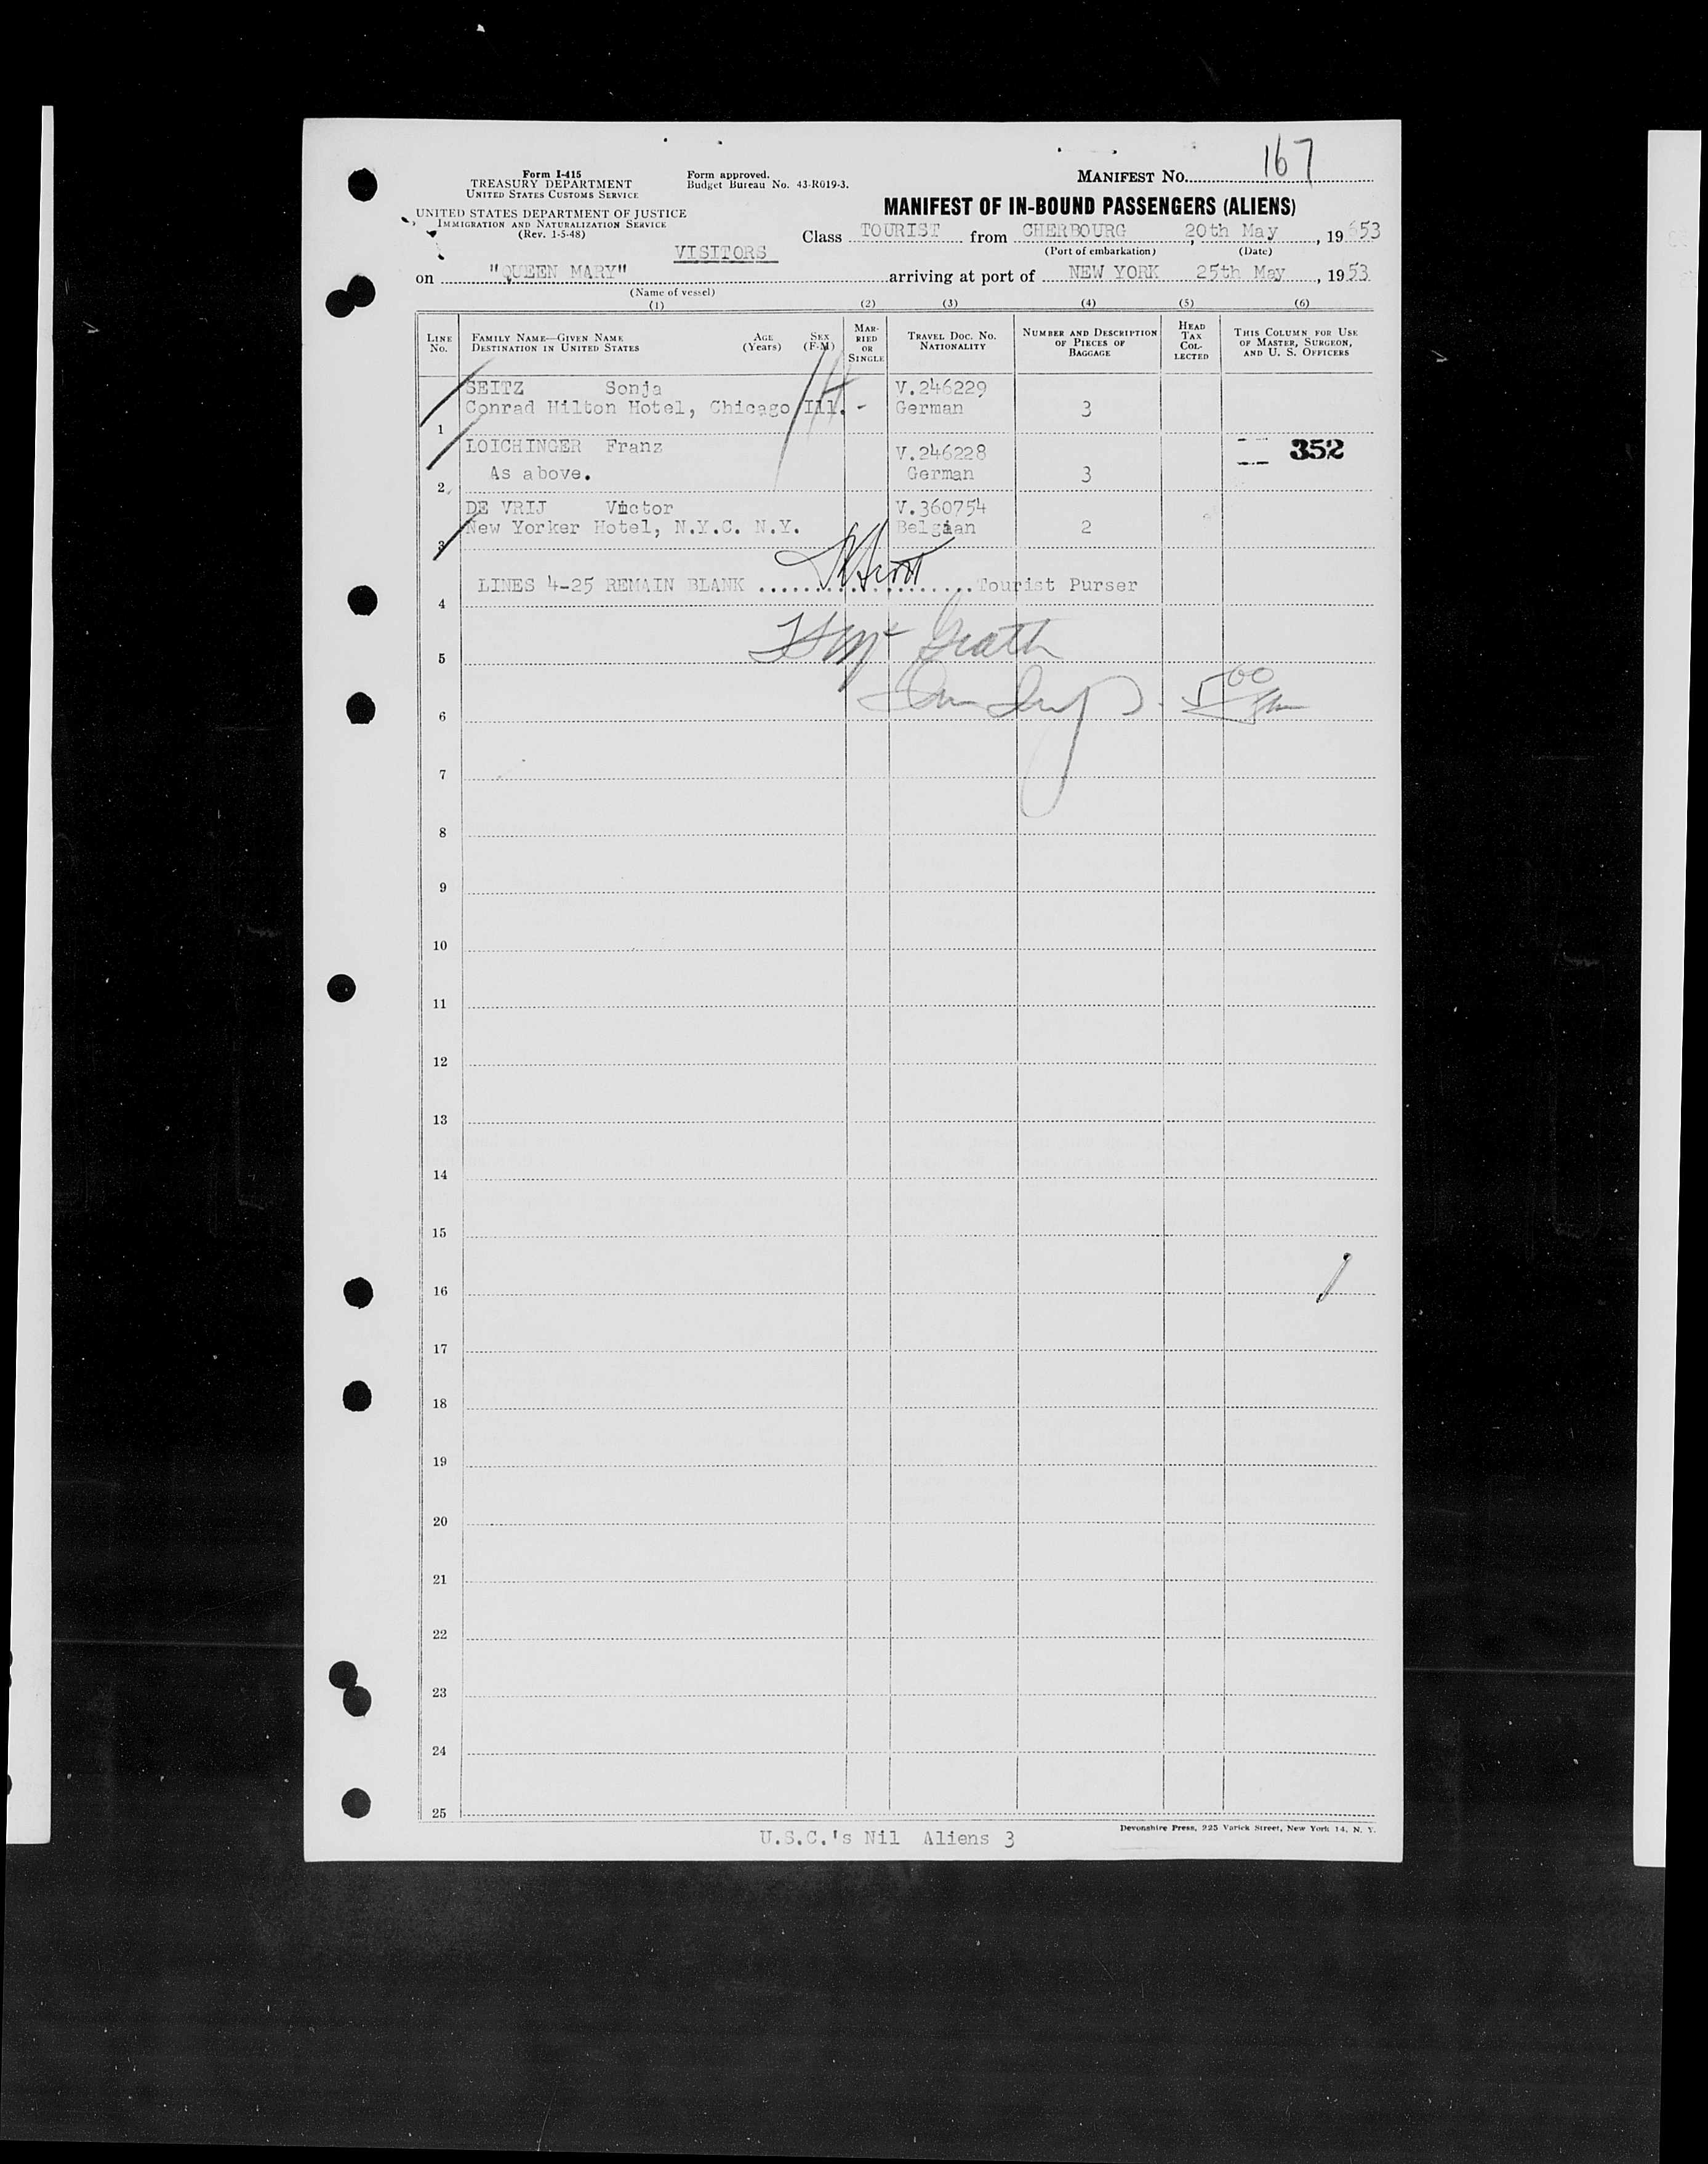 167
Form I-415
TREASURY DEPARTMENT
UNITED STATES CUSTOMS SERVICE
Form approved.
Budget Bureau No. 43-R019-3.
MANIFEST NO.
UNITED STATES DEPARTMENT OF JUSTICE
IMMIGRATION AND NATURALIZATION SERVICE
(Rev. 1-5-48)
MANIFEST OF IN-BOUND PASSENGERS (ALIENS)
VISITORS
Class TOURIST from CHERBOURG, 20th May, 1953
(Port of embarkation) (Date)
on "QUEEN MARY" arriving at port of NEW YORK 25th May, 1953
(Name of vessel)
(1) (2) (3) (4) (5) (6)
LINE NO.
FAMILY NAME—GIVEN NAME
DESTINATION IN UNITED STATES
AGE (Years)
SEX (F-M)
MARRIED OR SINGLE
TRAVEL DOC. NO.
NATIONALITY
NUMBER AND DESCRIPTION
OF PIECES OF
BAGGAGE
HEAD TAX COLLECTED
THIS COLUMN FOR USE
OF MASTER, SURGEON,
AND U. S. OFFICERS
SEITZ Sonja V.246229
Conrad Hilton Hotel, Chicago Ill. - German 3
1
LOICHINGER Franz V.246228 352
As above. German 3
2
DE VRIJ Victor V.360754
New Yorker Hotel, N.Y.C. N.Y. Belgian 2
3
LINES 4-25 REMAIN BLANK ................... Tourist Purser
4
5
6
7
8
9
10
11
12
13
14
15
16
17
18
19
20
21
22
23
24
25
Devonshire Press, 225 Varick Street, New York 14, N. Y.
U.S.C.'s Nil Aliens 3